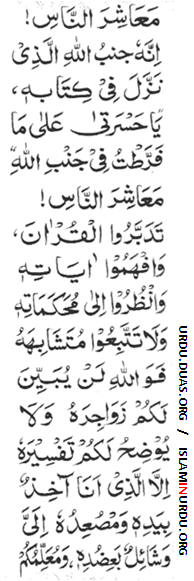 مَعَاشِرَ النَّاسِ!
اِنَّهٗ جَنْبُ اللهِ الَّذِیْ
نَزَّلَ فِیْ كِتَابِهٖ،
یَاحَسْرَتٰی عَلٰی مَا
فَرَّطْتُ فِیْ جَنْبِ اللهِ
مَعَاشِرَ النَّاسِ!
تَدَبَّرُوا الْقُرْاٰنَ،
وَافْهَمُوْا اٰیَاتِهٖ
وَانْظُرُوْا اِلٰی مُحْكَمَاتِهٖ
وَلَا تَتَّبِعُوْا مُتَشَابِهَهٗ
فَوَاللهِ لَنْ یُبَیِّنَ
لَكُمْ زَوَاجِرَهٗ وَلَا
یُوْضِحُ لَكُمْ تَفْسِیْرَهٗ
اِلَّا الَّذِیْ اَنَا اٰخِذٌ
بِیَدِهٖ وَمُصْعِدُهٗ اِلَیَّ
وَشَائِلٌ بِعَضُدِهٖ وَمُعَلِّمُكُمْ
URDU.DUAS.ORG / ISLAMINURDU.ORG